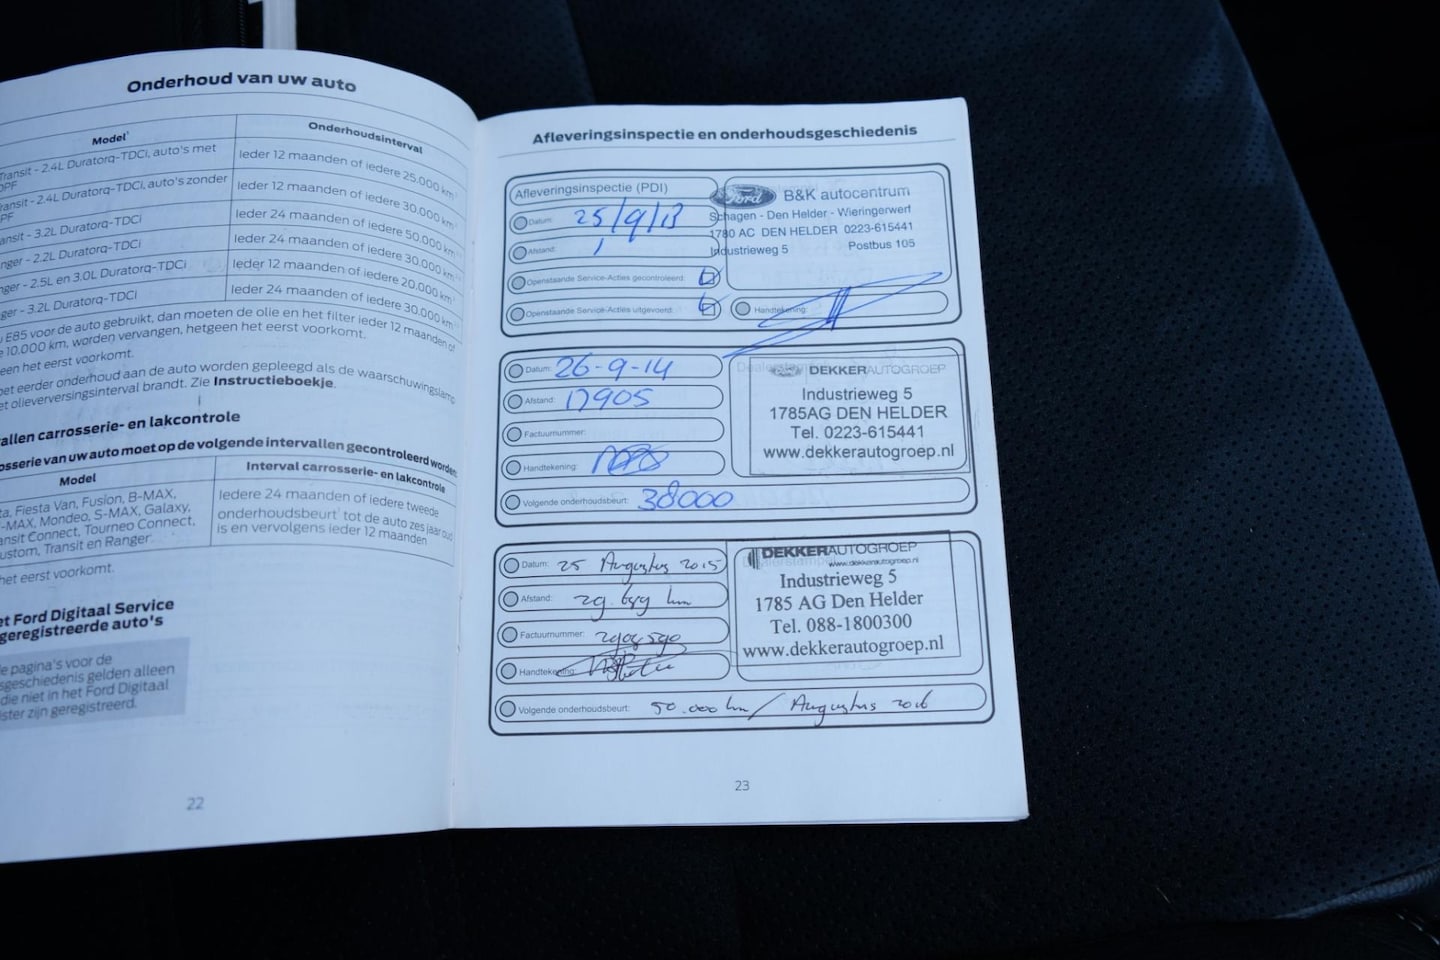 Onderhoud van uw auto
Model Onderhoudsinterval
Transit - 2.4L Duratorq-TDCi, auto's met DPF
Ieder 12 maanden of iedere 25.000 km
2.4L Duratorq-TDCi, auto's zonder
Ieder 12 maanden of iedere 30.000 km
- 3.2L Duratorq-TDCi
Ieder 24 maanden of iedere 50.000 km
- 2.2L Duratorq-TDCi
Ieder 24 maanden of iedere 30.000 km
- 2.5L en 3.0L Duratorq-TDCi
Ieder 12 maanden of iedere 20.000 km
- 3.2L Duratorq-TDCi
Ieder 24 maanden of iedere 30.000 km
E85 voor de auto gebruikt, dan moeten de olie en het filter ieder 12 maanden of
10.000 km, worden vervangen, hetgeen het eerst voorkomt.
het eerst voorkomt.
eerder onderhoud aan de auto worden gepleegd als de waarschuwingslamp
olieverversingsinterval brandt. Zie Instructieboekje.
carrosserie- en lakcontrole
van uw auto moet op de volgende intervallen gecontroleerd worden
Model Interval carrosserie- en lakcontrole
Fiesta Van, Fusion, B-MAX,
Mondeo, S-MAX, Galaxy,
Connect, Tourneo Connect,
Transit en Ranger.
Iedere 24 maanden of iedere tweede
onderhoudsbeurt tot de auto zes jaar oud
is en vervolgens ieder 12 maanden
het eerst voorkomt.
Ford Digitaal Service
geregistreerde auto's
pagina's voor de
gelden alleen
die niet in het Ford Digitaal
zijn geregistreerd.
22
Afleveringsinspectie en onderhoudsgeschiedenis
Afleveringsinspectie (PDI)
Datum: 25/9/13
Afstand: 1
Openstaande Service-Acties gecontroleerd:
Openstaande Service-Acties uitgevoerd:
Ford B&K autocentrum
Schagen - Den Helder - Wieringerwerf
1780 AC DEN HELDER 0223-615441
Industrieweg 5 Postbus 105
Handtekening:
Datum: 26-9-14
Afstand: 17905
Factuurnummer:
Handtekening:
Volgende onderhoudsbeurt: 38000
DEKKERAUTOGROEP
Industrieweg 5
1785AG DEN HELDER
Tel. 0223-615441
www.dekkerautogroep.nl
Datum: 25 Augustus 2015
Afstand: km
Factuurnummer:
Handtekening:
Volgende onderhoudsbeurt: 50.000 km / Augustus 2016
DEKKERAUTOGROEP
www.dekkerautogroep.nl
Industrieweg 5
1785 AG Den Helder
Tel. 088-1800300
www.dekkerautogroep.nl
23